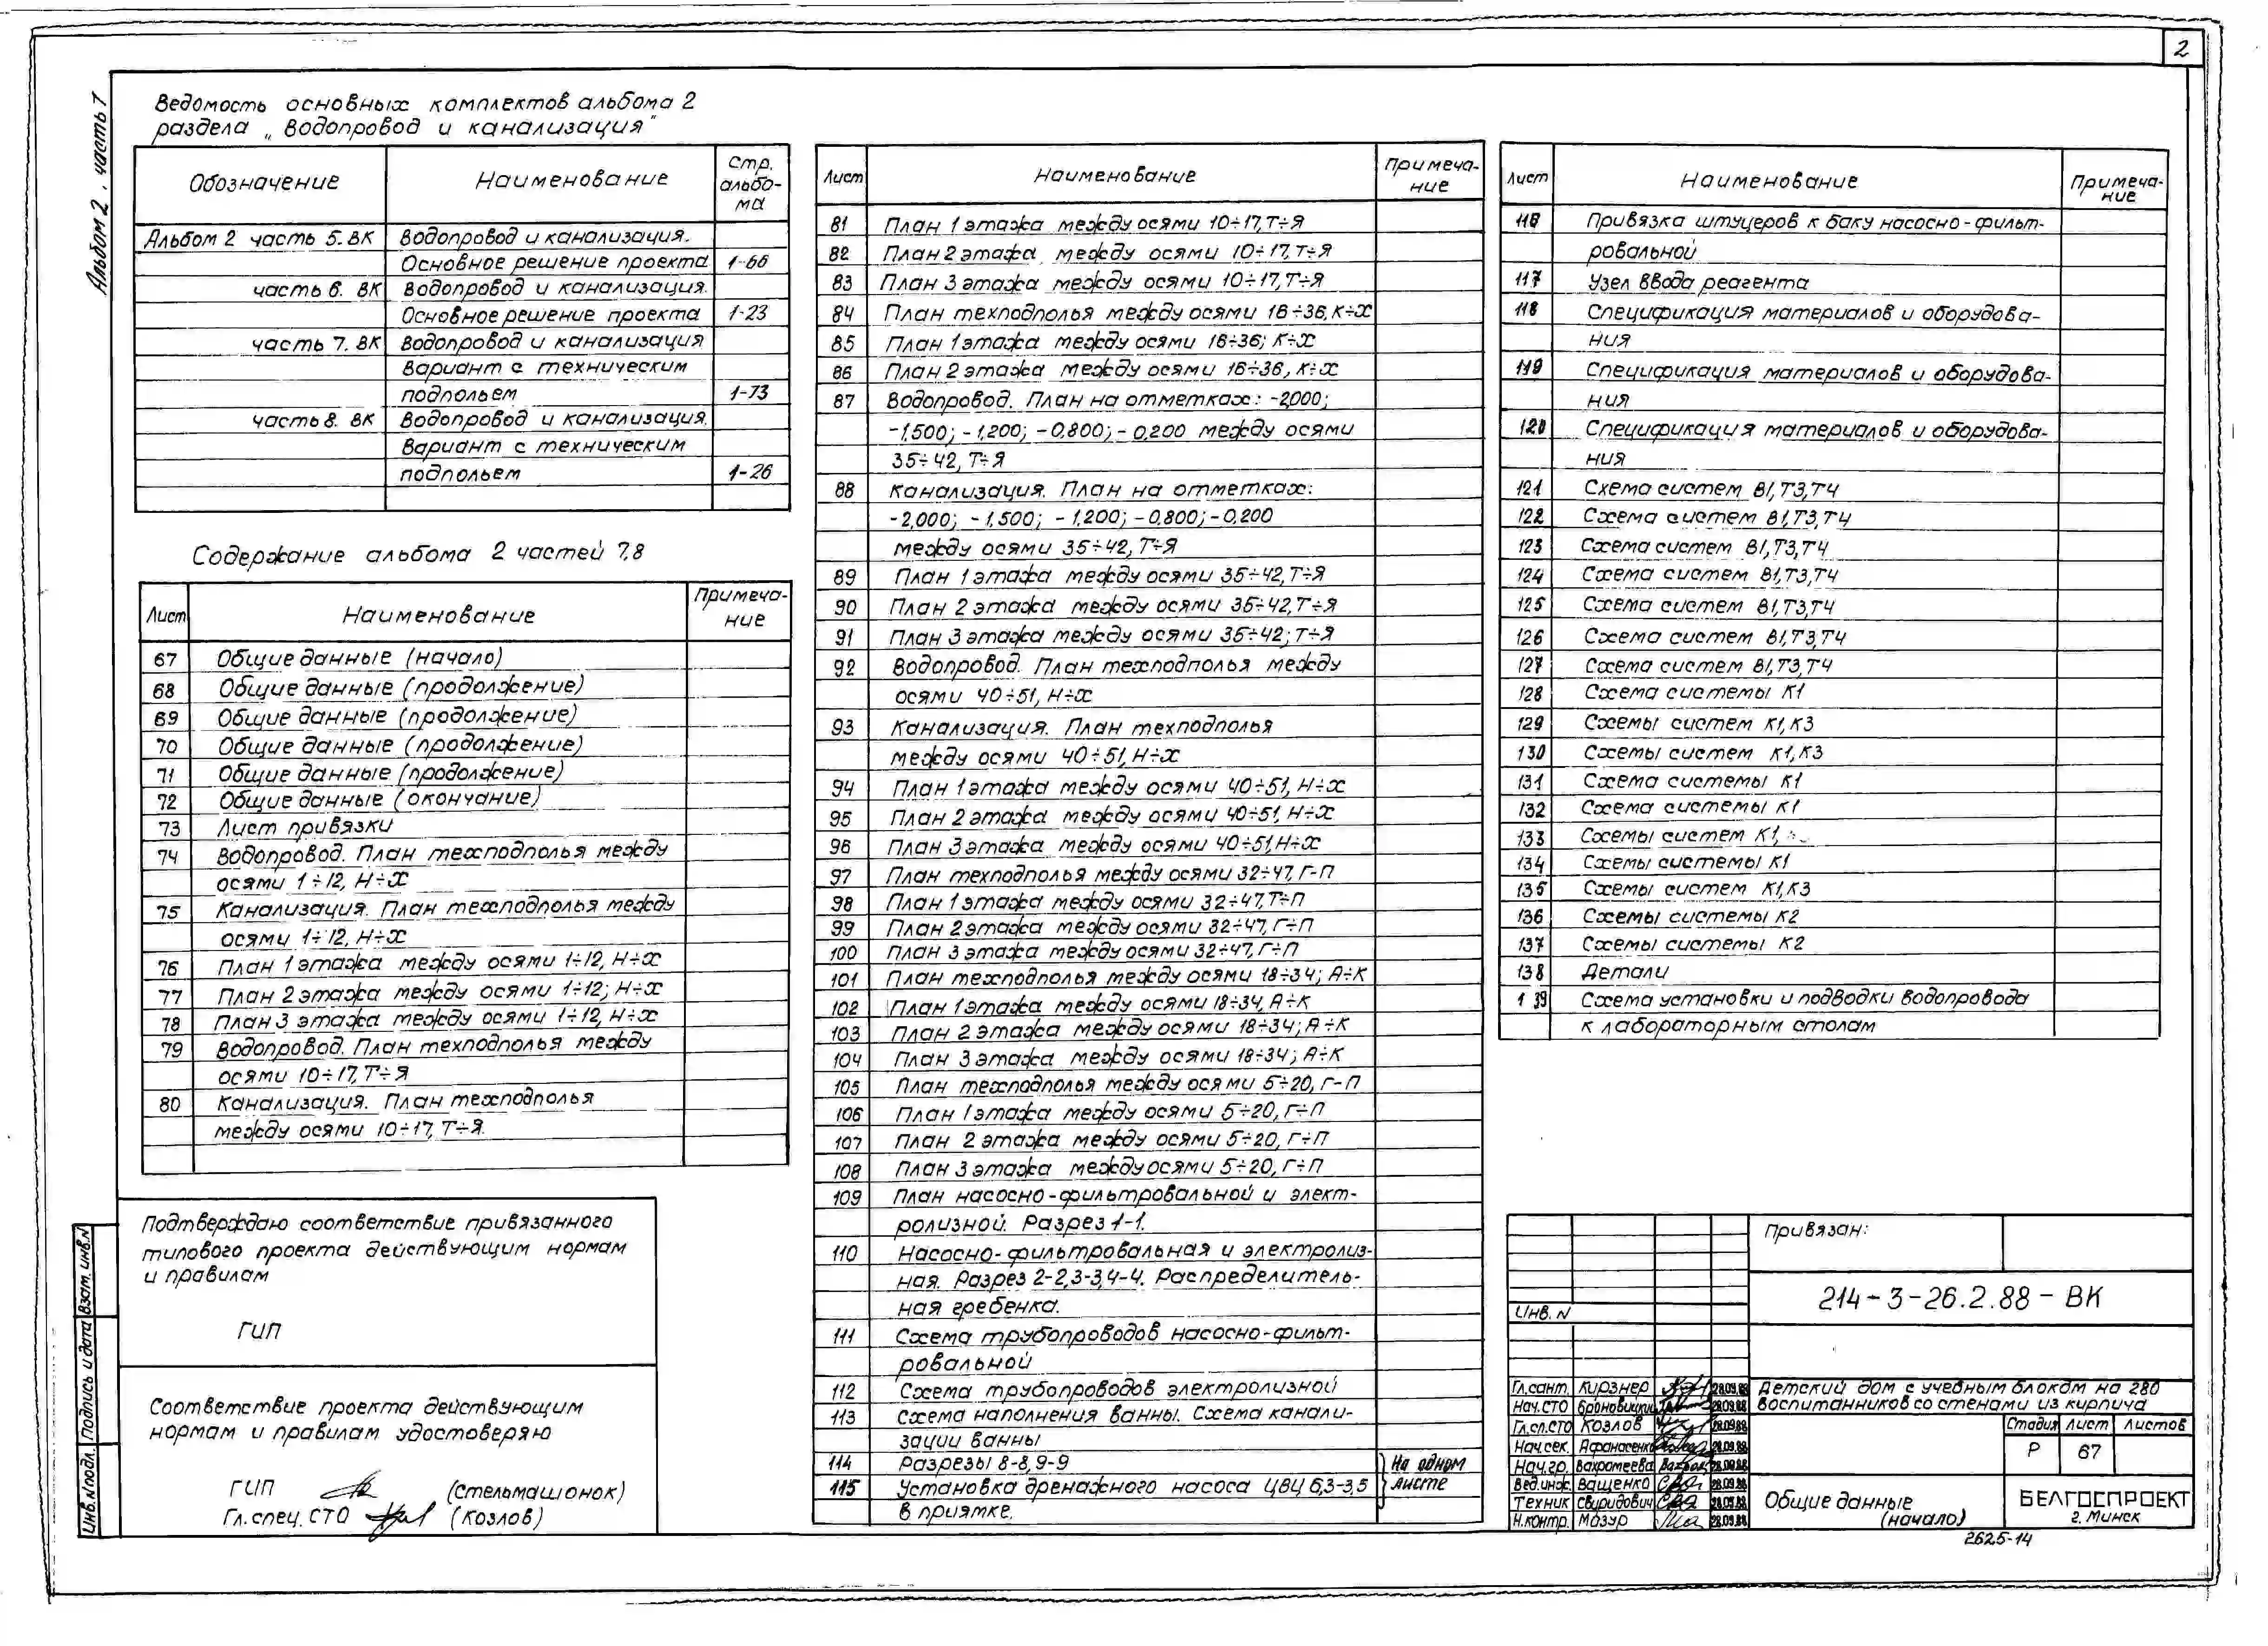 2
Альбом 2. часть 7
Ведомость основных комплектов альбома 2
раздела „Водопровод и канализация"
Обозначение Наименование Стр. альбо-ма
Альбом 2 часть 5. ВК Водопровод и канализация.
Основное решение проекта 1-66
часть 6. ВК Водопровод и канализация.
Основное решение проекта 1-23
часть 7. ВК Водопровод и канализация
Вариант с техническим
подпольем 1-73
часть 8. ВК Водопровод и канализация.
Вариант с техническим
подпольем 1-26
Содержание альбома 2 частей 7,8
Лист Наименование Примеча-ние
67 Общие данные (начало)
68 Общие данные (продолжение)
69 Общие данные (продолжение)
70 Общие данные (продолжение)
71 Общие данные (продолжение)
72 Общие данные (окончание)
73 Лист привязки
74 Водопровод. План техподполья между
осями 1÷12, Н÷Х
75 Канализация. План техподполья между
осями 1÷12, Н÷Х
76 План 1 этажа между осями 1÷12, Н÷Х
77 План 2 этажа между осями 1÷12; Н÷Х
78 План 3 этажа между осями 1÷12, Н÷Х
79 Водопровод. План техподполья между
осями 10÷17, Т÷Я
80 Канализация. План техподполья
между осями 10÷17, Т÷Я.
Подтверждаю соответствие привязанного
типового проекта действующим нормам
и правилам
ГИП
Соответствие проекта действующим
нормам и правилам удостоверяю
ГИП (Стельмашонок)
Гл. спец. СТО (Козлов)
Инв.№подл. Подпись и дата Взам. инв.№
Лист Наименование Примеча-ние
81 План 1 этажа между осями 10÷17, Т÷Я
82 План 2 этажа между осями 10÷17, Т÷Я
83 План 3 этажа между осями 10÷17, Т÷Я
84 План техподполья между осями 16÷36, К÷Х
85 План 1 этажа между осями 16÷36; К÷Х
86 План 2 этажа между осями 16÷36, К÷Х
87 Водопровод. План на отметках: -2,000;
-1,500; -1,200; -0,800; -0,200 между осями
35÷42, Т÷Я
88 Канализация. План на отметках:
-2,000; -1,500; -1,200; -0,800; -0,200
между осями 35÷42, Т÷Я
89 План 1 этажа между осями 35÷42, Т÷Я
90 План 2 этажа между осями 35÷42, Т÷Я
91 План 3 этажа между осями 35÷42; Т÷Я
92 Водопровод. План техподполья между
осями 40÷51, Н÷Х
93 Канализация. План техподполья
между осями 40÷51, Н÷Х
94 План 1 этажа между осями 40÷51, Н÷Х
95 План 2 этажа между осями 40÷51, Н÷Х
96 План 3 этажа между осями 40÷51, Н÷Х
97 План техподполья между осями 32÷47, Г-П
98 План 1 этажа между осями 32÷47, Т÷П
99 План 2 этажа между осями 32÷47, Г÷П
100 План 3 этажа между осями 32÷47, Г÷П
101 План техподполья между осями 18÷34; А÷К
102 План 1 этажа между осями 18÷34, А÷К
103 План 2 этажа между осями 18÷34; А÷К
104 План 3 этажа между осями 18÷34; А÷К
105 План техподполья между осями 5÷20, Г-П
106 План 1 этажа между осями 5÷20, Г÷П
107 План 2 этажа между осями 5÷20, Г÷П
108 План 3 этажа между осями 5÷20, Г÷П
109 План насосно-фильтровальной и элект-
ролизной. Разрез 1-1.
110 Насосно-фильтровальная и электролиз-
ная. Разрез 2-2, 3-3, 4-4. Распределитель-
ная гребенка.
111 Схема трубопроводов насосно-фильт-
ровальной
112 Схема трубопроводов электролизной
113 Схема наполнения ванны. Схема канали-
зации ванны
114 Разрезы 8-8, 9-9 На одном
115 Установка дренажного насоса ЦВЦ 6,3-3,5 листе
в приямке.
Лист Наименование Примеча-ние
116 Привязка штуцеров к баку насосно-фильт-
ровальной
117 Узел ввода реагента
118 Спецификация материалов и оборудова-
ния
119 Спецификация материалов и оборудова-
ния
120 Спецификация материалов и оборудова-
ния
121 Схема систем В1, Т3, Т4
122 Схема систем В1, Т3, Т4
123 Схема систем В1, Т3, Т4
124 Схема систем В1, Т3, Т4
125 Схема систем В1, Т3, Т4
126 Схема систем В1, Т3, Т4
127 Схема систем В1, Т3, Т4
128 Схема системы К1
129 Схемы систем К1, К3
130 Схемы систем К1, К3
131 Схема системы К1
132 Схема системы К1
133 Схемы систем К1,
134 Схемы системы К1
135 Схемы систем К1, К3
136 Схемы системы К2
137 Схемы системы К2
138 Детали
139 Схема установки и подводки водопровода
к лабораторным столам
Привязан:
Инв. №
214-3-26.2.88-ВК
Гл.сант. Кирзнер 28.09.88
Нач.СТО Броновицкий 28.09.88
Гл.сп.СТО Козлов 28.09.88
Нач.сек. Афанасенко 28.09.88
Нач.гр. Вахромеева 28.09.88
Вед.инж. Ващенко 28.09.88
Техник Свиридович 28.09.88
Н.контр. Мазур 28.09.88
Детский дом с учебным блоком на 280
воспитанников со стенами из кирпича
Стадия Лист Листов
Р 67
Общие данные
(начало)
БЕЛГОСПРОЕКТ
г. Минск
2625-14